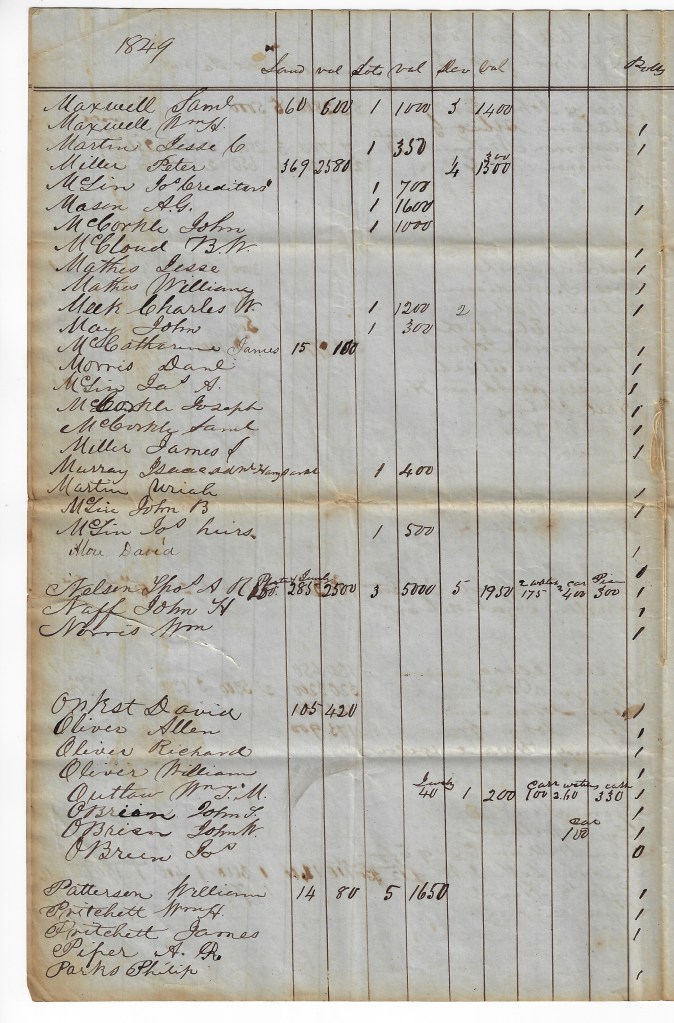 1849
Land val Lots val Slav val Polls
Maxwell Saml 60 600 1 1000 3 1400
Maxwell Wm H. 1
Martin Jesse C 1 350 1
Miller Peter 369 2580 4 1500
McLin Jos Creditors 1 700
Mason A.G. 1 1600 1
McCorkle John 1 1000
McCloud B.W. 1
Mathes Jesse 1
Mathes William 1
Meek Charles W. 1 1200 2 1
May John 1 300
McCatharine James 15 100 1
Morris Danl 1
McLin Jas A. 1
McCorkle Joseph 1
McCorkle Saml 1
Miller James S 1
Murray 1 400
Martin Uriah 1
McLin John B 1
McLin Jos heirs 1 500
David 1
0
Nelson Thos A R 285 2500 3 5000 5 1950 2 watches 175 2 car 400 Pian 300 1
Naff John H 1
Norris Wm 1
Onkst David 105 420 1
Oliver Allen 1
Oliver Richard 1
Oliver William 1
Outlaw Wm T. M. 40 1 200 carr 100 watches 260 carr 330 1
OBrien John T. 1
OBrien John W. car 100 1
OBrien Jos 0
Patterson William 14 80 5 1650 1
Pritchett Wm H. 1
Pritchett James 1
Piper A. R.
Parks Philip 1